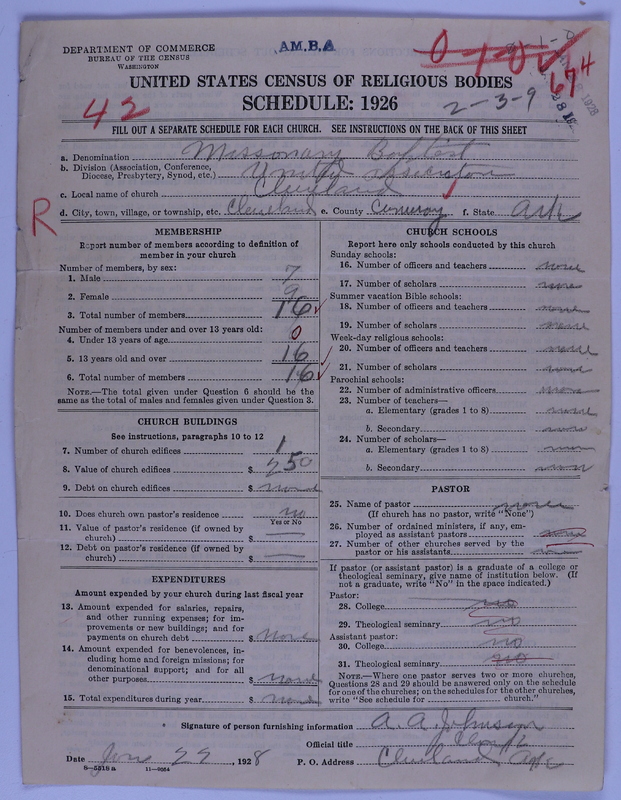 DEPARTMENT OF COMMERCE
BUREAU OF THE CENSUS
WASHINGTON
A.M.B.A
674
UNITED STATES CENSUS OF RELIGIOUS BODIES
SCHEDULE: 1926
42
2-3-9
FILL OUT A SEPARATE SCHEDULE FOR EACH CHURCH. SEE INSTRUCTIONS ON THE BACK OF THIS SHEET
a. Denomination Missonary Baptist
b. Division (Association, Conference,
Diocese, Presbytery, Synod, etc.) United
c. Local name of church Cleveland
d. City, town, village, or township, etc. Cleveland e. County Conway f. State Ark
R
MEMBERSHIP
Report number of members according to definition of
member in your church
Number of members, by sex:
1. Male 7
2. Female 9
3. Total number of members 16
Number of members under and over 13 years old:
4. Under 13 years of age 0
5. 13 years old and over 16
6. Total number of members 16
NOTE.—The total given under Question 6 should be the
same as the total of males and females given under Question 3.
CHURCH BUILDINGS
See instructions, paragraphs 10 to 12
7. Number of church edifices 1
8. Value of church edifices $ 250
9. Debt on church edifices $ none
10. Does church own pastor's residence? no
Yes or No
11. Value of pastor's residence (if owned by
church) $
12. Debt on pastor's residence (if owned by
church) $
EXPENDITURES
Amount expended by your church during last fiscal year
13. Amount expended for salaries, repairs,
and other running expenses; for im-
provements or new buildings; and for
payments on church debt $ None
14. Amount expended for benevolences, in-
cluding home and foreign missions; for
denominational support; and for all
other purposes $ none
15. Total expenditures during year $ none
CHURCH SCHOOLS
Report here only schools conducted by this church
Sunday schools:
16. Number of officers and teachers none
17. Number of scholars none
Summer vacation Bible schools:
18. Number of officers and teachers none
19. Number of scholars none
Week-day religious schools:
20. Number of officers and teachers none
21. Number of scholars none
Parochial schools:
22. Number of administrative officers none
23. Number of teachers—
a. Elementary (grades 1 to 8) none
b. Secondary none
24. Number of scholars—
a. Elementary (grades 1 to 8) none
b. Secondary none
PASTOR
25. Name of pastor none
(If church has no pastor, write "None")
26. Number of ordained ministers, if any, em-
ployed as assistant pastors none
27. Number of other churches served by the
pastor or his assistants none
If pastor (or assistant pastor) is a graduate of a college or
theological seminary, give name of institution below. (If
not a graduate, write "No" in the space indicated.)
Pastor:
28. College no
29. Theological seminary no
Assistant pastor:
30. College no
31. Theological seminary no
NOTE.—Where one pastor serves two or more churches,
Questions 28 and 29 should be answered only on the schedule
for one of the churches; on the schedules for the other churches,
write "See schedule for church."
Signature of person furnishing information A. A. Johnson
Official title Clerk
Date Jan 22, 1928 P. O. Address Cleveland Ark
8—5518a 11—9064